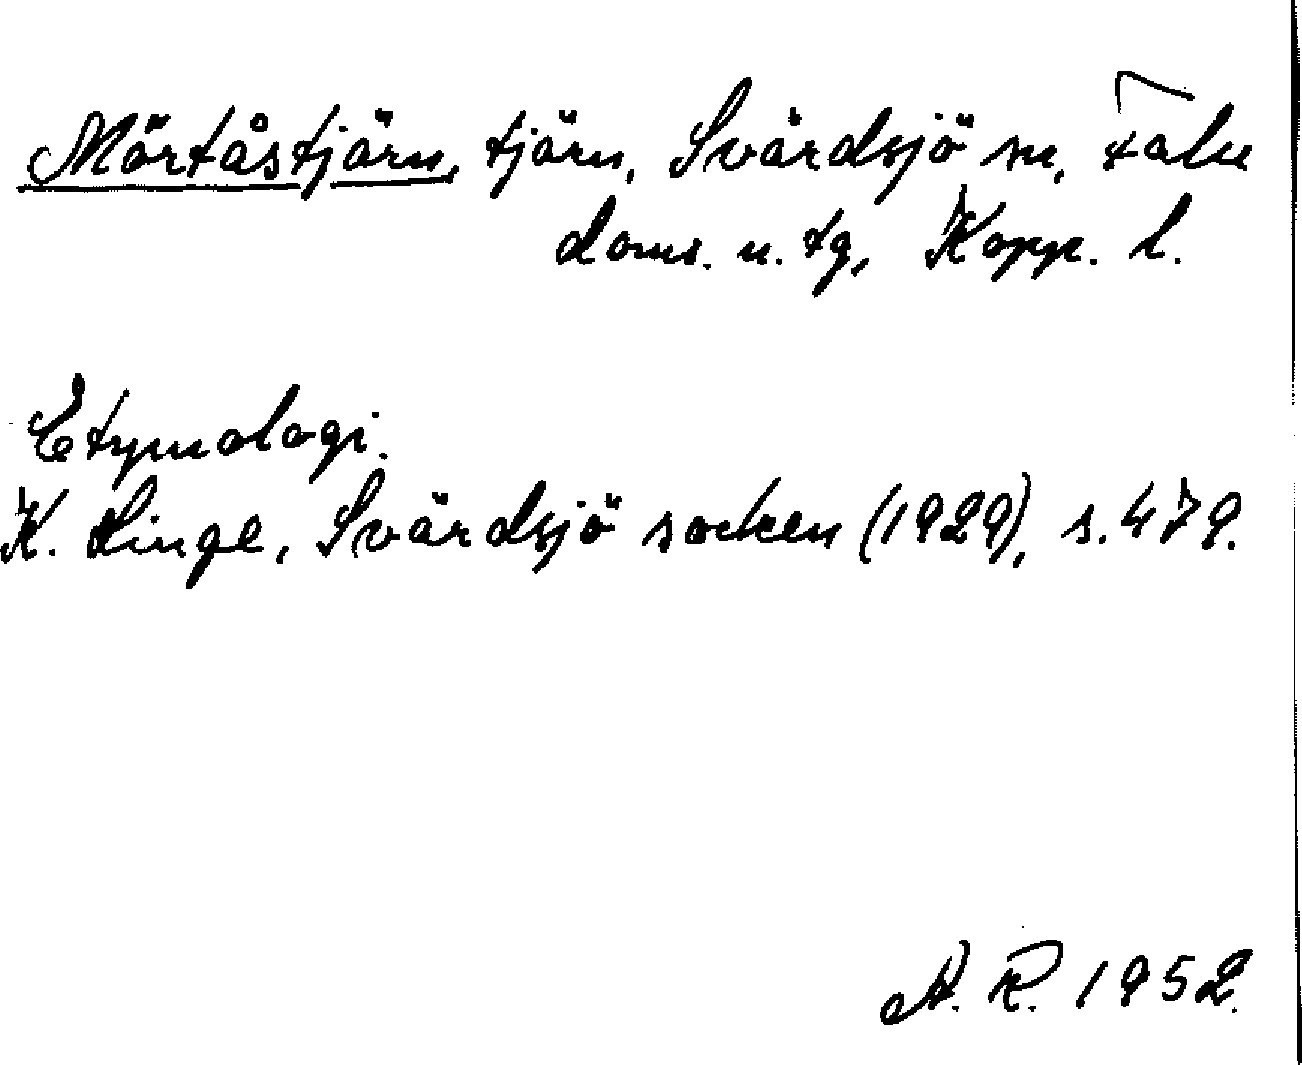 Mörtåstjärn, tjärn, Svärdsjö sn, Falu
doms. o. tg, Kopp. l.
Etymologi.
K. Linge, Svärdsjö socken (1929), s. 479.
A. R. 1952.